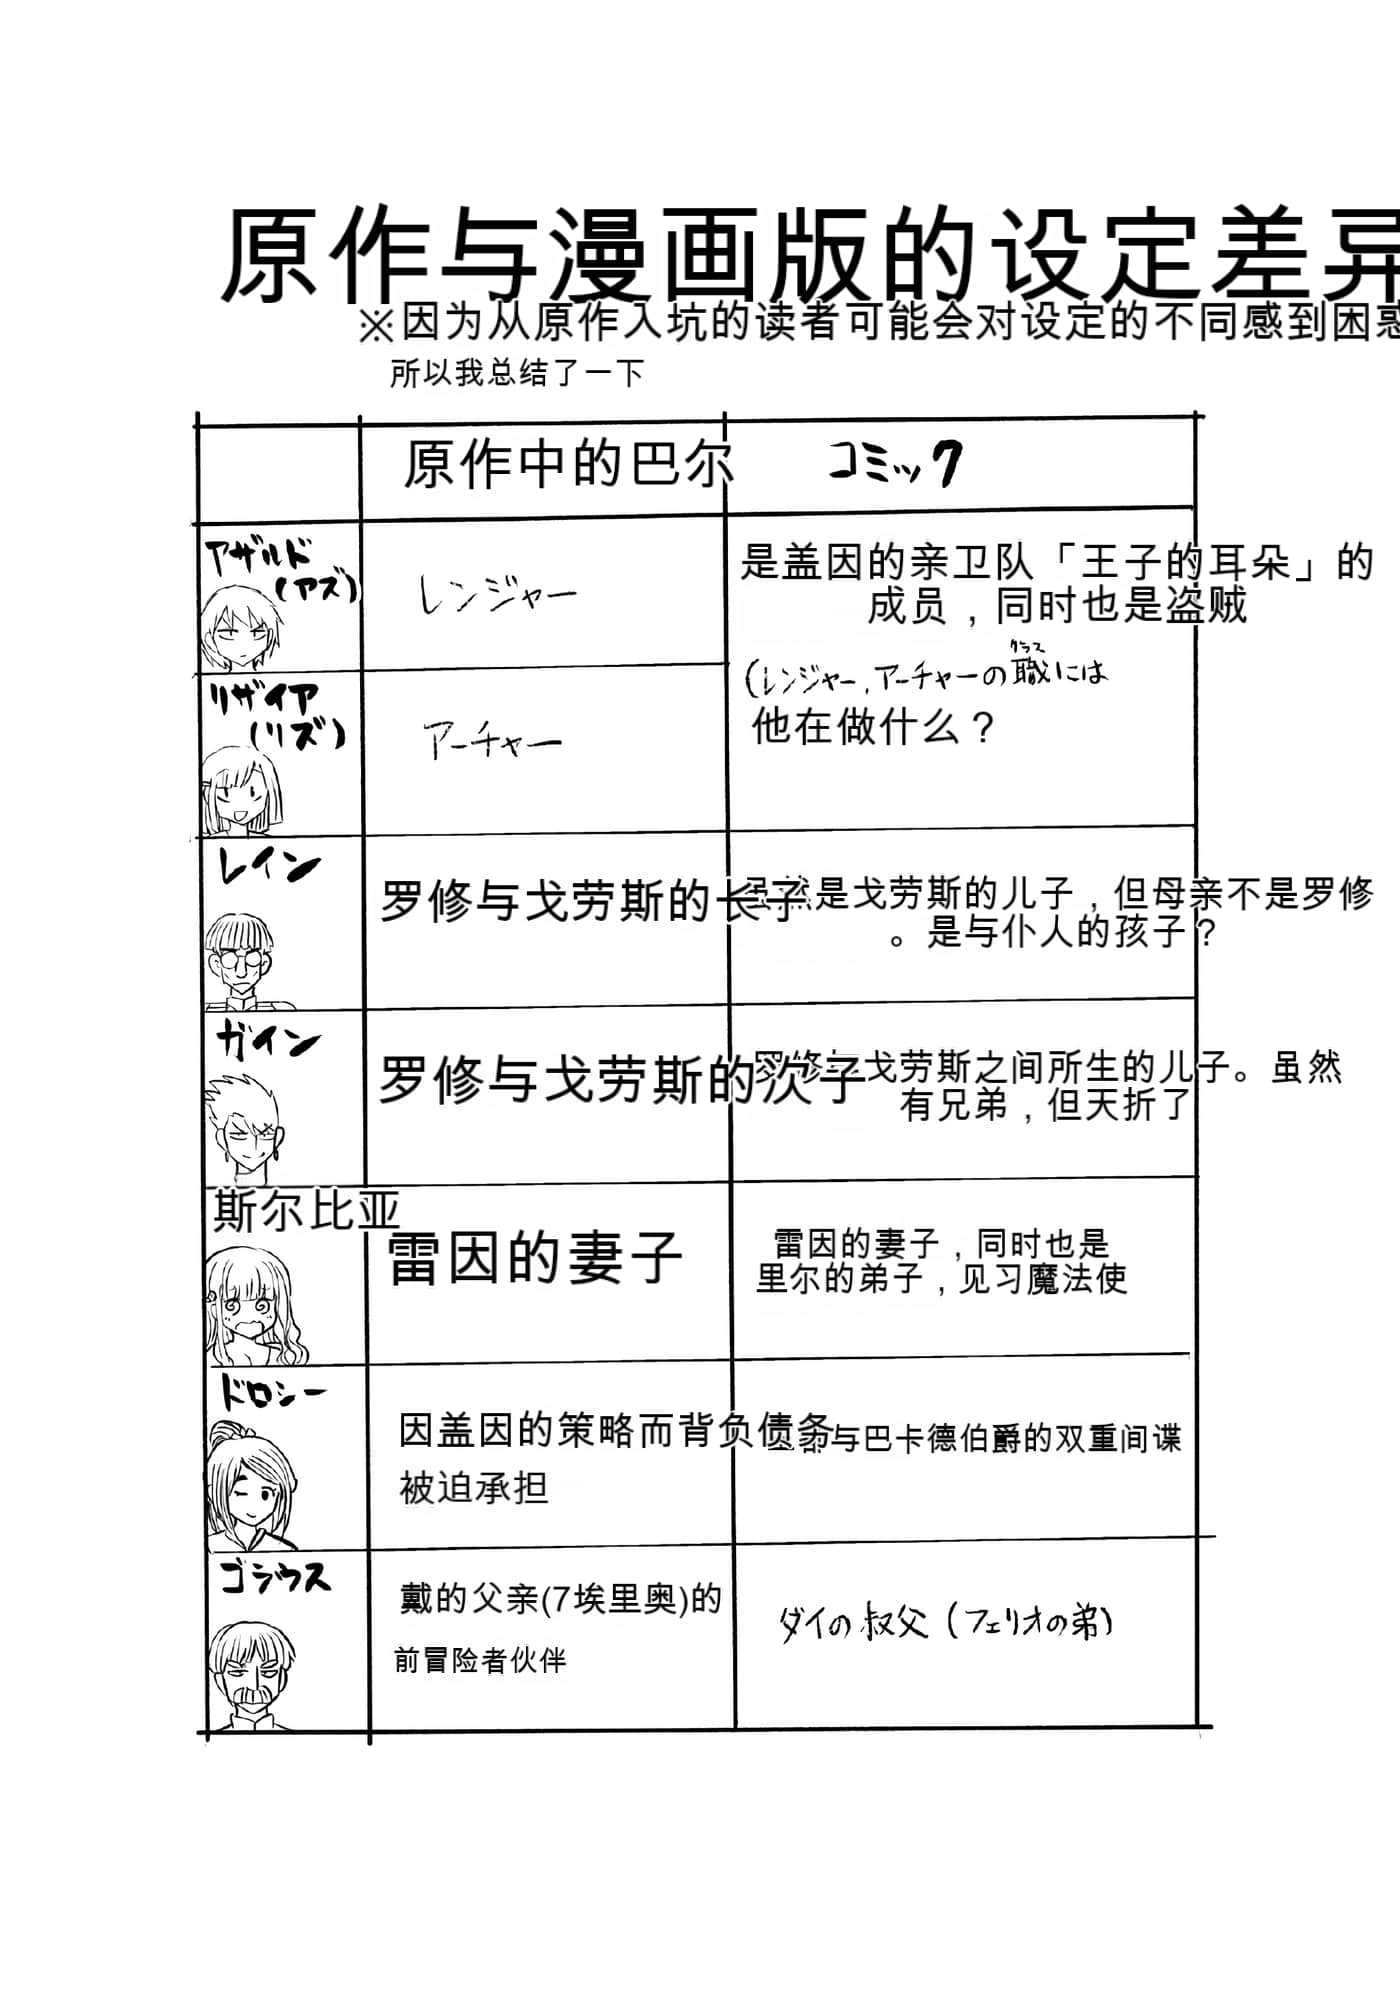 原作与漫画版的设定差异
※因为从原作入坑的读者可能会对设定的不同感到困惑
所以我总结了一下
原作中的巴尔
コミック
アザルド
(アズ)
レンジャー
是盖因的亲卫队「王子的耳朵」的
成员，同时也是盗贼
クラス
(レンジャー,アーチャーの職には
他在做什么？
リザイア
(リズ)
アーチャー
レイン
罗修与戈劳斯的长子
虽然是戈劳斯的儿子，但母亲不是罗修
。是与仆人的孩子？
ガイン
罗修与戈劳斯的次子
罗修与戈劳斯之间所生的儿子。虽然
有兄弟，但夭折了
斯尔比亚
雷因的妻子
雷因的妻子，同时也是
里尔的弟子，见习魔法使
ドロシー
因盖因的策略而背负债务
被迫承担
与巴卡德伯爵的双重间谍
ゴジウス
戴的父亲(7埃里奥)的
前冒险者伙伴
ダイの叔父(フェリオの弟)